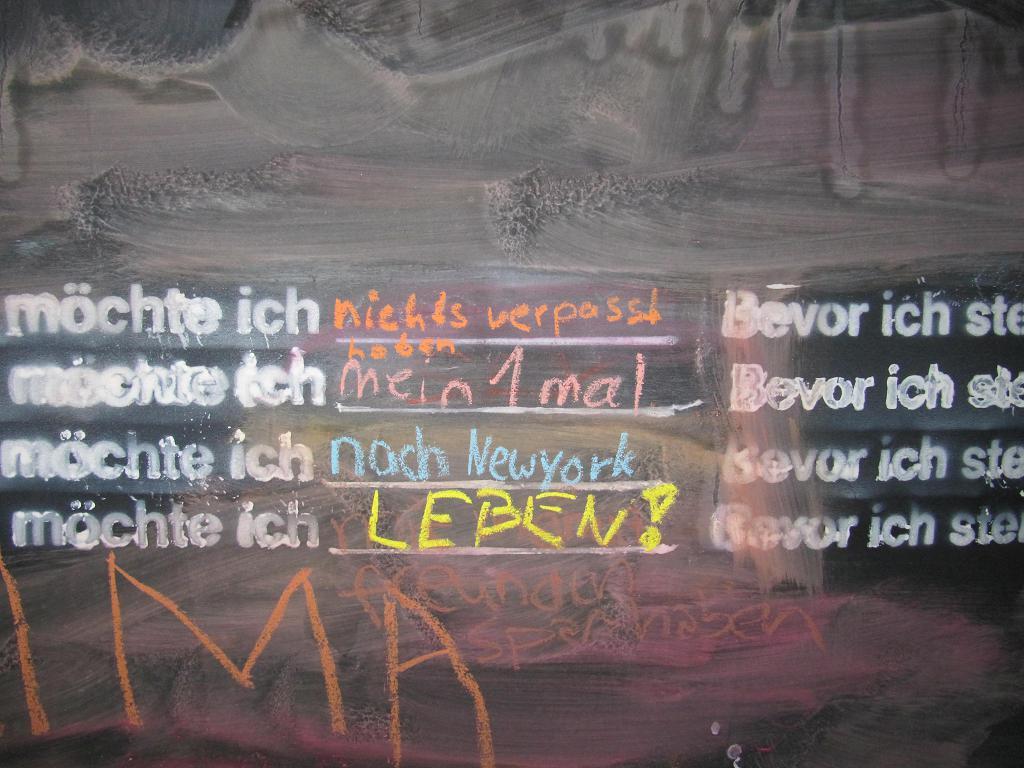 möchte ich nichts verpasst Bevor ich ste
haben
möchte ich mein 1 mal Bevor ich ste
möchte ich nach Newyork Bevor ich ste
möchte ich LEBEN! Bevor ich ste
IMA
freundin
spaß haben